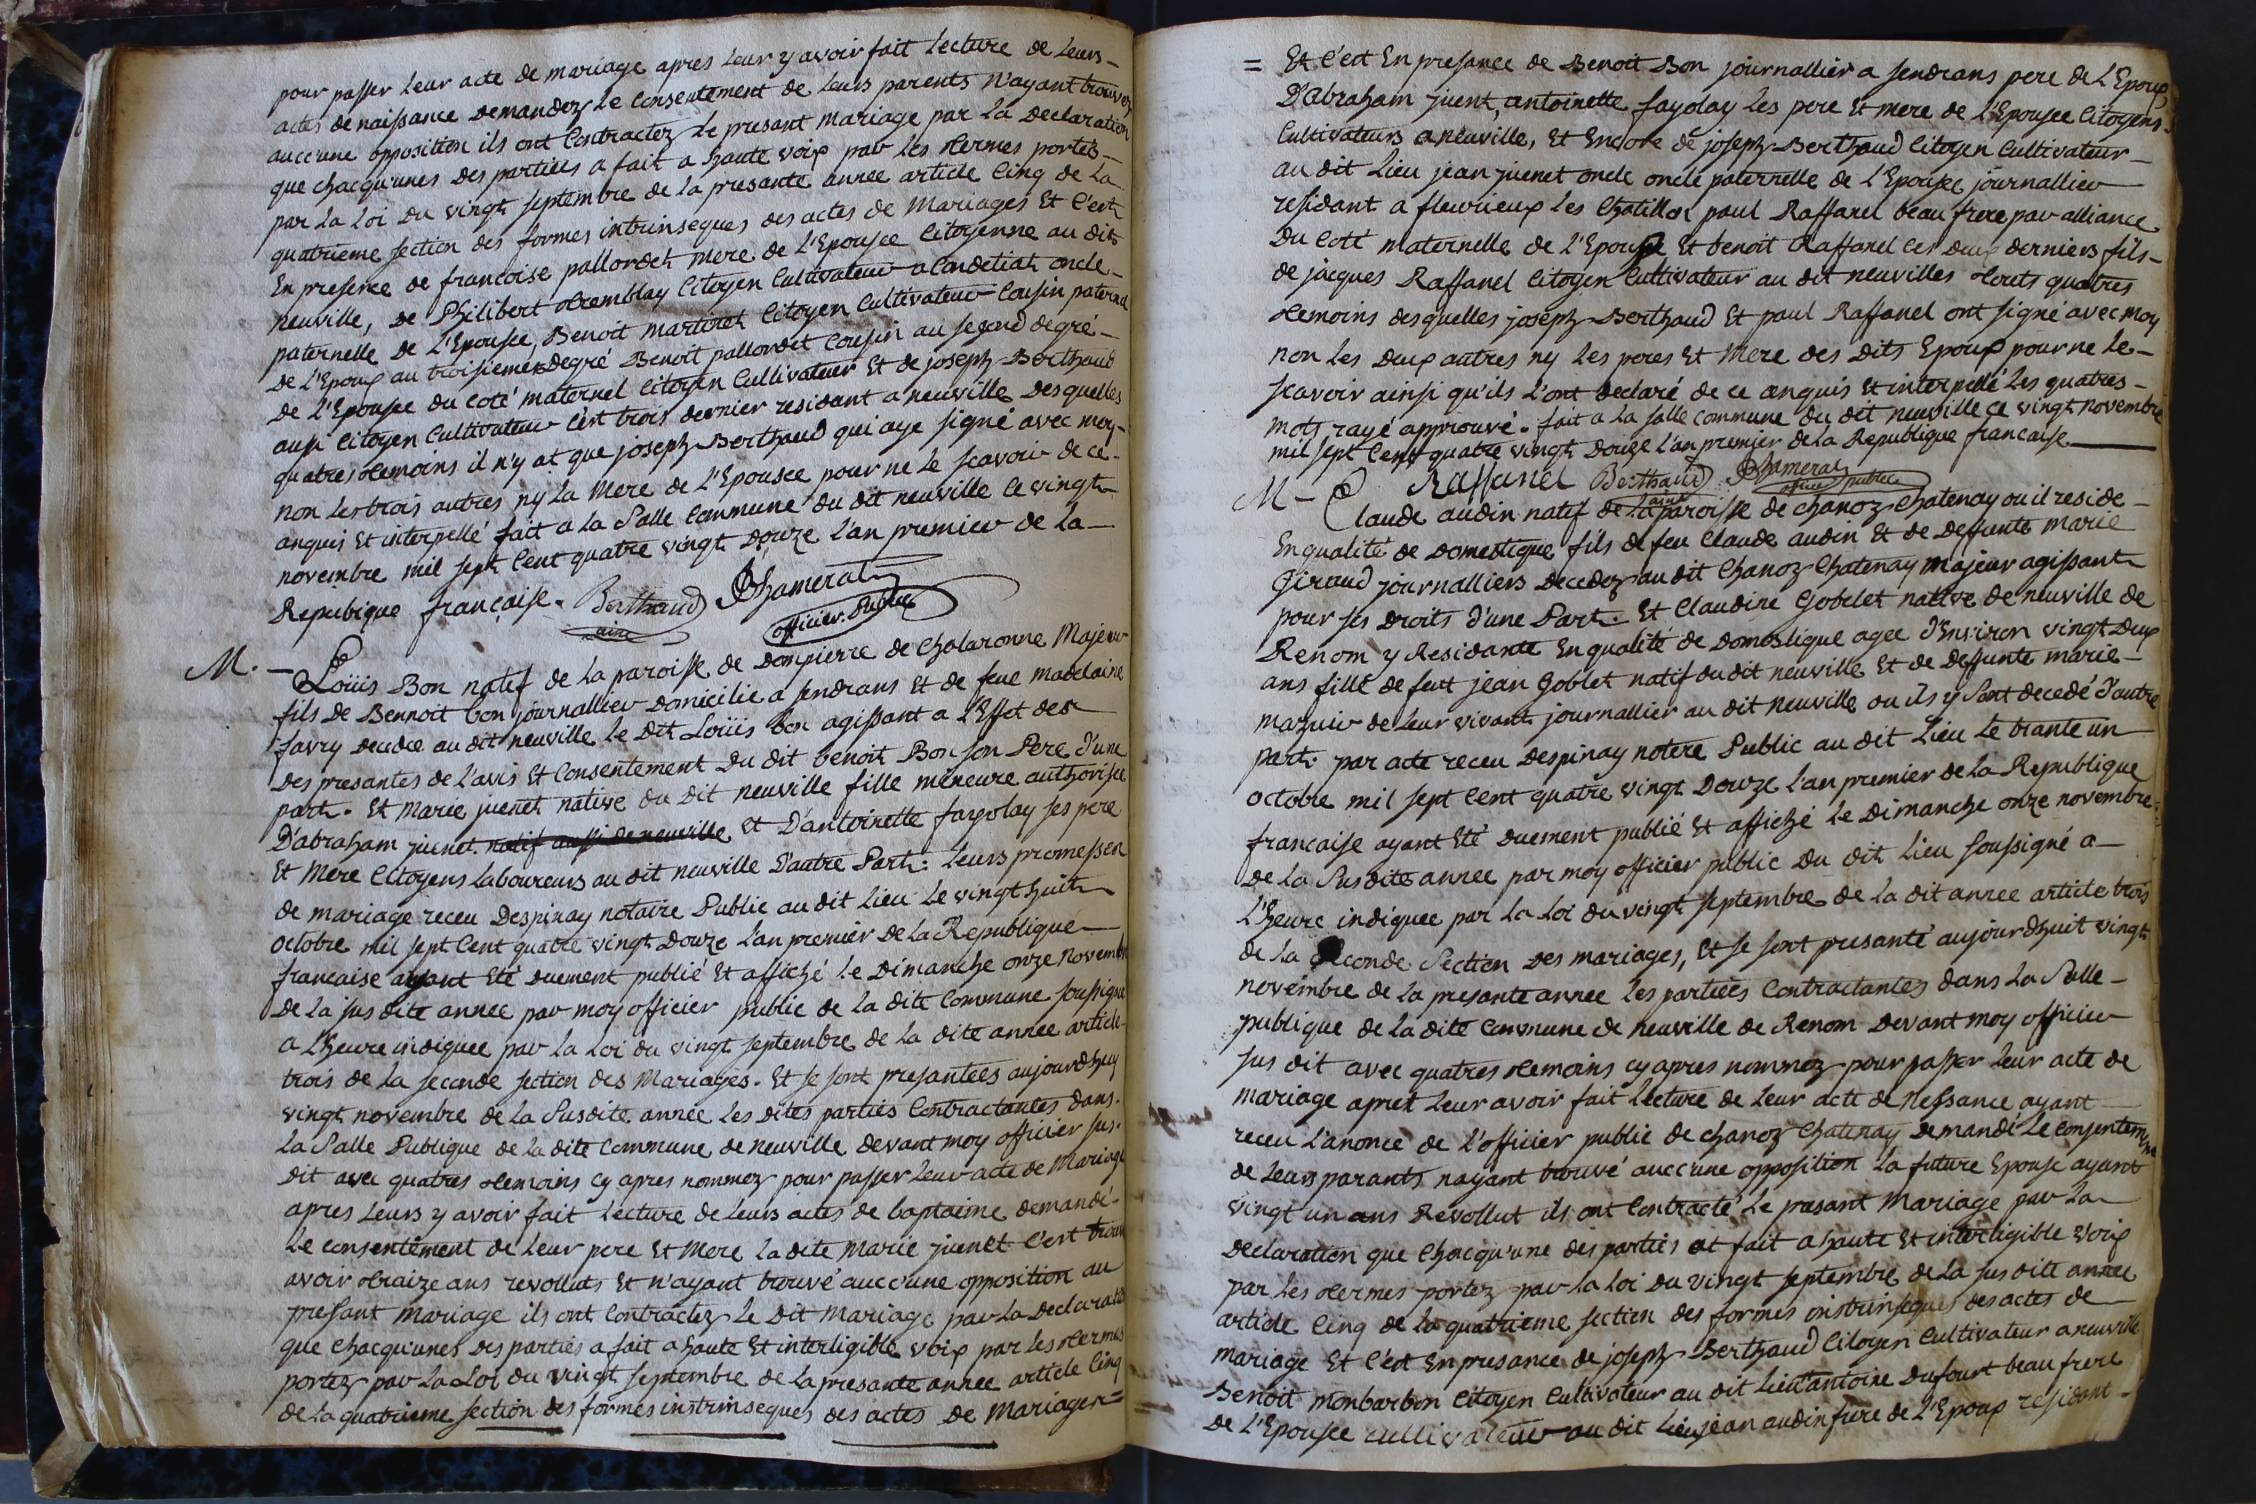 pour passer leur acte de mariage apres leur y avoir fait lecture de leurs
actes de naissance demandez le consentement de leurs parents n'ayant trouvez
auccune opposition ils ont contractez le presant mariage par la declaration
que chacqu'unes des partiees a fait a haute voix par les termes portés
par la loi du vingt septembre de la presante année article cinq de la
quatrieme section des formes intrinseques des actes de mariages et c'est
en presence de francoise pallordet mere de l'Epousee citoyenne au dit
neuville, de Philibert tremblay citoyen cultivateur a Condetiat oncle
paternelle de l'Epousee, Benoit martinet citoyen cultivateur cousin paternel
de l'Epoux au troisieme degré Benoit pallordet cousin au segond degré
de l'Epousee du coté maternel citoyen cultivateur et de joseph Berthaud
aussi citoyen cultivateur c'est trois dernier residant a neuville desquelles
quatres temoins il n'y at que joseph Berthaud qui aye signé avec moy
non les trois autres ny la mere de l'Epousee pour ne le scavoir de ce
anquis et interpellé fait a la Salle commune du dit neuville ce vingt
novembre mil sept cent quatre vingt douze l'an premier de la
Repubique française. Berthaud Dhameral
ainé officier Public
M. Loüis Bon natif de la paroisse de dompierre de Chalaronne Majeur
fils de Bennoit bon journallier domicilie a sendrans et de feue madelaine
favry decedee au dit neuville le dit Loüis Bon agissant a l'Effet des
des presantes de l'avis et consentement du dit benoit Bon son Pere d'une
part. et Marie juenet native du dit neuville fille meneure authorisee
D'abraham juenet natif aussi de neuville et D'antoinette fayolay ses pere
et mere citoyens laboureurs au dit neuville D'autre Part: leurs promessen
de mariage receu Despinay notaire Public au dit lieu le vingt huit
octobre mil sept cent quatre vingt douze l'an premier de la Republique
francaise ayant eté duement publié et affiché le dimanche onze novembre
de la sus dite annee par moy officier public de la dite commune soussigné
a l'heure indiquee par la loi du vingt septembre de la dite année article
trois de la seconde section des Mariages. et se sont presantees aujourdhuy
vingt novembre de la susdite année les dites parties contractantes dans
la Salle Publique de la dite commune de neuville devant moy officier sus
dit avec quatres temoins cy apres nommez pour passer leur acte de Mariage
apres leurs y avoir fait lecture de leurs actes de baptaime demandé
le consentement de leur pere et mere la dite marie juenet c'est trouvé
avoir traize ans revolluts et n'ayant trouvé auccune opposition au
presant mariage ils ont contractez le dit mariage par la declaration
que chacqu'unes des parties a fait a haute et interligible voix par les termes
portez par la Loi du vingt septembre de la presante année article cinq
de la quatrieme section des formes instrinseques des actes de Mariages =
= Et c'est en presance de Benoit Bon journallier a sendrans pere de l'Epoux
D'abraham juent, antoinette fayolay les pere et mere de l'Epousee citoyens
cultivateurs a neuville, et encore de joseph Berthaud citoyen cultivateur
au dit lieu jean juenet oncle oncle paternelle de l'Epousee journallier
residant a fleurieux les Chatillon paul Raffanel beau frere par alliance
du coté maternelle de l'Epousee et benoit Raffanel ces deux derniers fils
de jacques Raffanel citoyen cultivateur au dit neuvilles touts quatres
temoins desquelles joseph Berthaud et paul Raffanel ont signé avec moy
non les deux autres ny les peres et mere des dits Epoux pour ne le
scavoir ainsi qu'ils l'ont declaré de ce anquis et interpellé les quatres
mots rayé approuvé. fait a la salle commune du dit neuville ce vingt novembre
mil sept cent quatre vingt douze l'an premier de la Republique francaise.
Raffanel Berthaud Dhameral
ainé officier public
M - Claude audin natif de la paroisse de chanoz chatenay ou il reside
en qualité de domestique fils de feu claude audin et de deffunte marie
Giraud journalliers decedez au dit chanoz chatenay majeur agissant
pour ses droits d'une Part. et Claudine Gobelet native de neuville de
Renom y Residante en qualité de domestique agee d'environ vingt deux
ans fille de feut jean Goblet natif du dit neuville et de deffunte marie
mazuir de leur vivant journallier au dit neuville ou ils y sont decedé d'autre
part. par acte receu Despinay notere Public au dit lieu le trante un
octobre mil sept cent quatre vingt douze l'an premier de la Republique
francaise ayant eté duement publié et affiché le dimanche onze novembre
de la susdite annee par moy officier public du dit lieu soussigné a
l'heure indiquee par la loi du vingt septembre de la dit annee article trois
de la seconde Section des mariages, et se sont presanté aujourdhuit vingt
novembre de la presante annee les partiees contractantes dans la Salle
publique de la dite commune de neuville de Renom devant moy officier
sus dit avec quatres temoins cy apres nommez pour passer leur acte de
mariage apret leur avoir fait lecture de leur acte de nessance ayant
receu l'anonce de l'officier public de chanoz chatenay demandé le consentement
de leurs parants nayant trouvé auccune opposition la future Epouse ayant
vingt un ans Revollut ils ont contracté le presant mariage par la
declaration que chacqu'une des parties at fait a haute et interligible voix
par les termes portez par la loi du vingt septembre de la sus dite annee
article cinq de la quatrieme section des formes instrinseques des actes de
mariage et c'est en presance de joseph Berthaud citoyen cultivateur a neuville
Benoit monbarbon citoyen cultivateur au dit lieu antoine dufourt beau frere
de l'Epousee cultivateur au dit lieu jean audin frere de l'Epoux resident